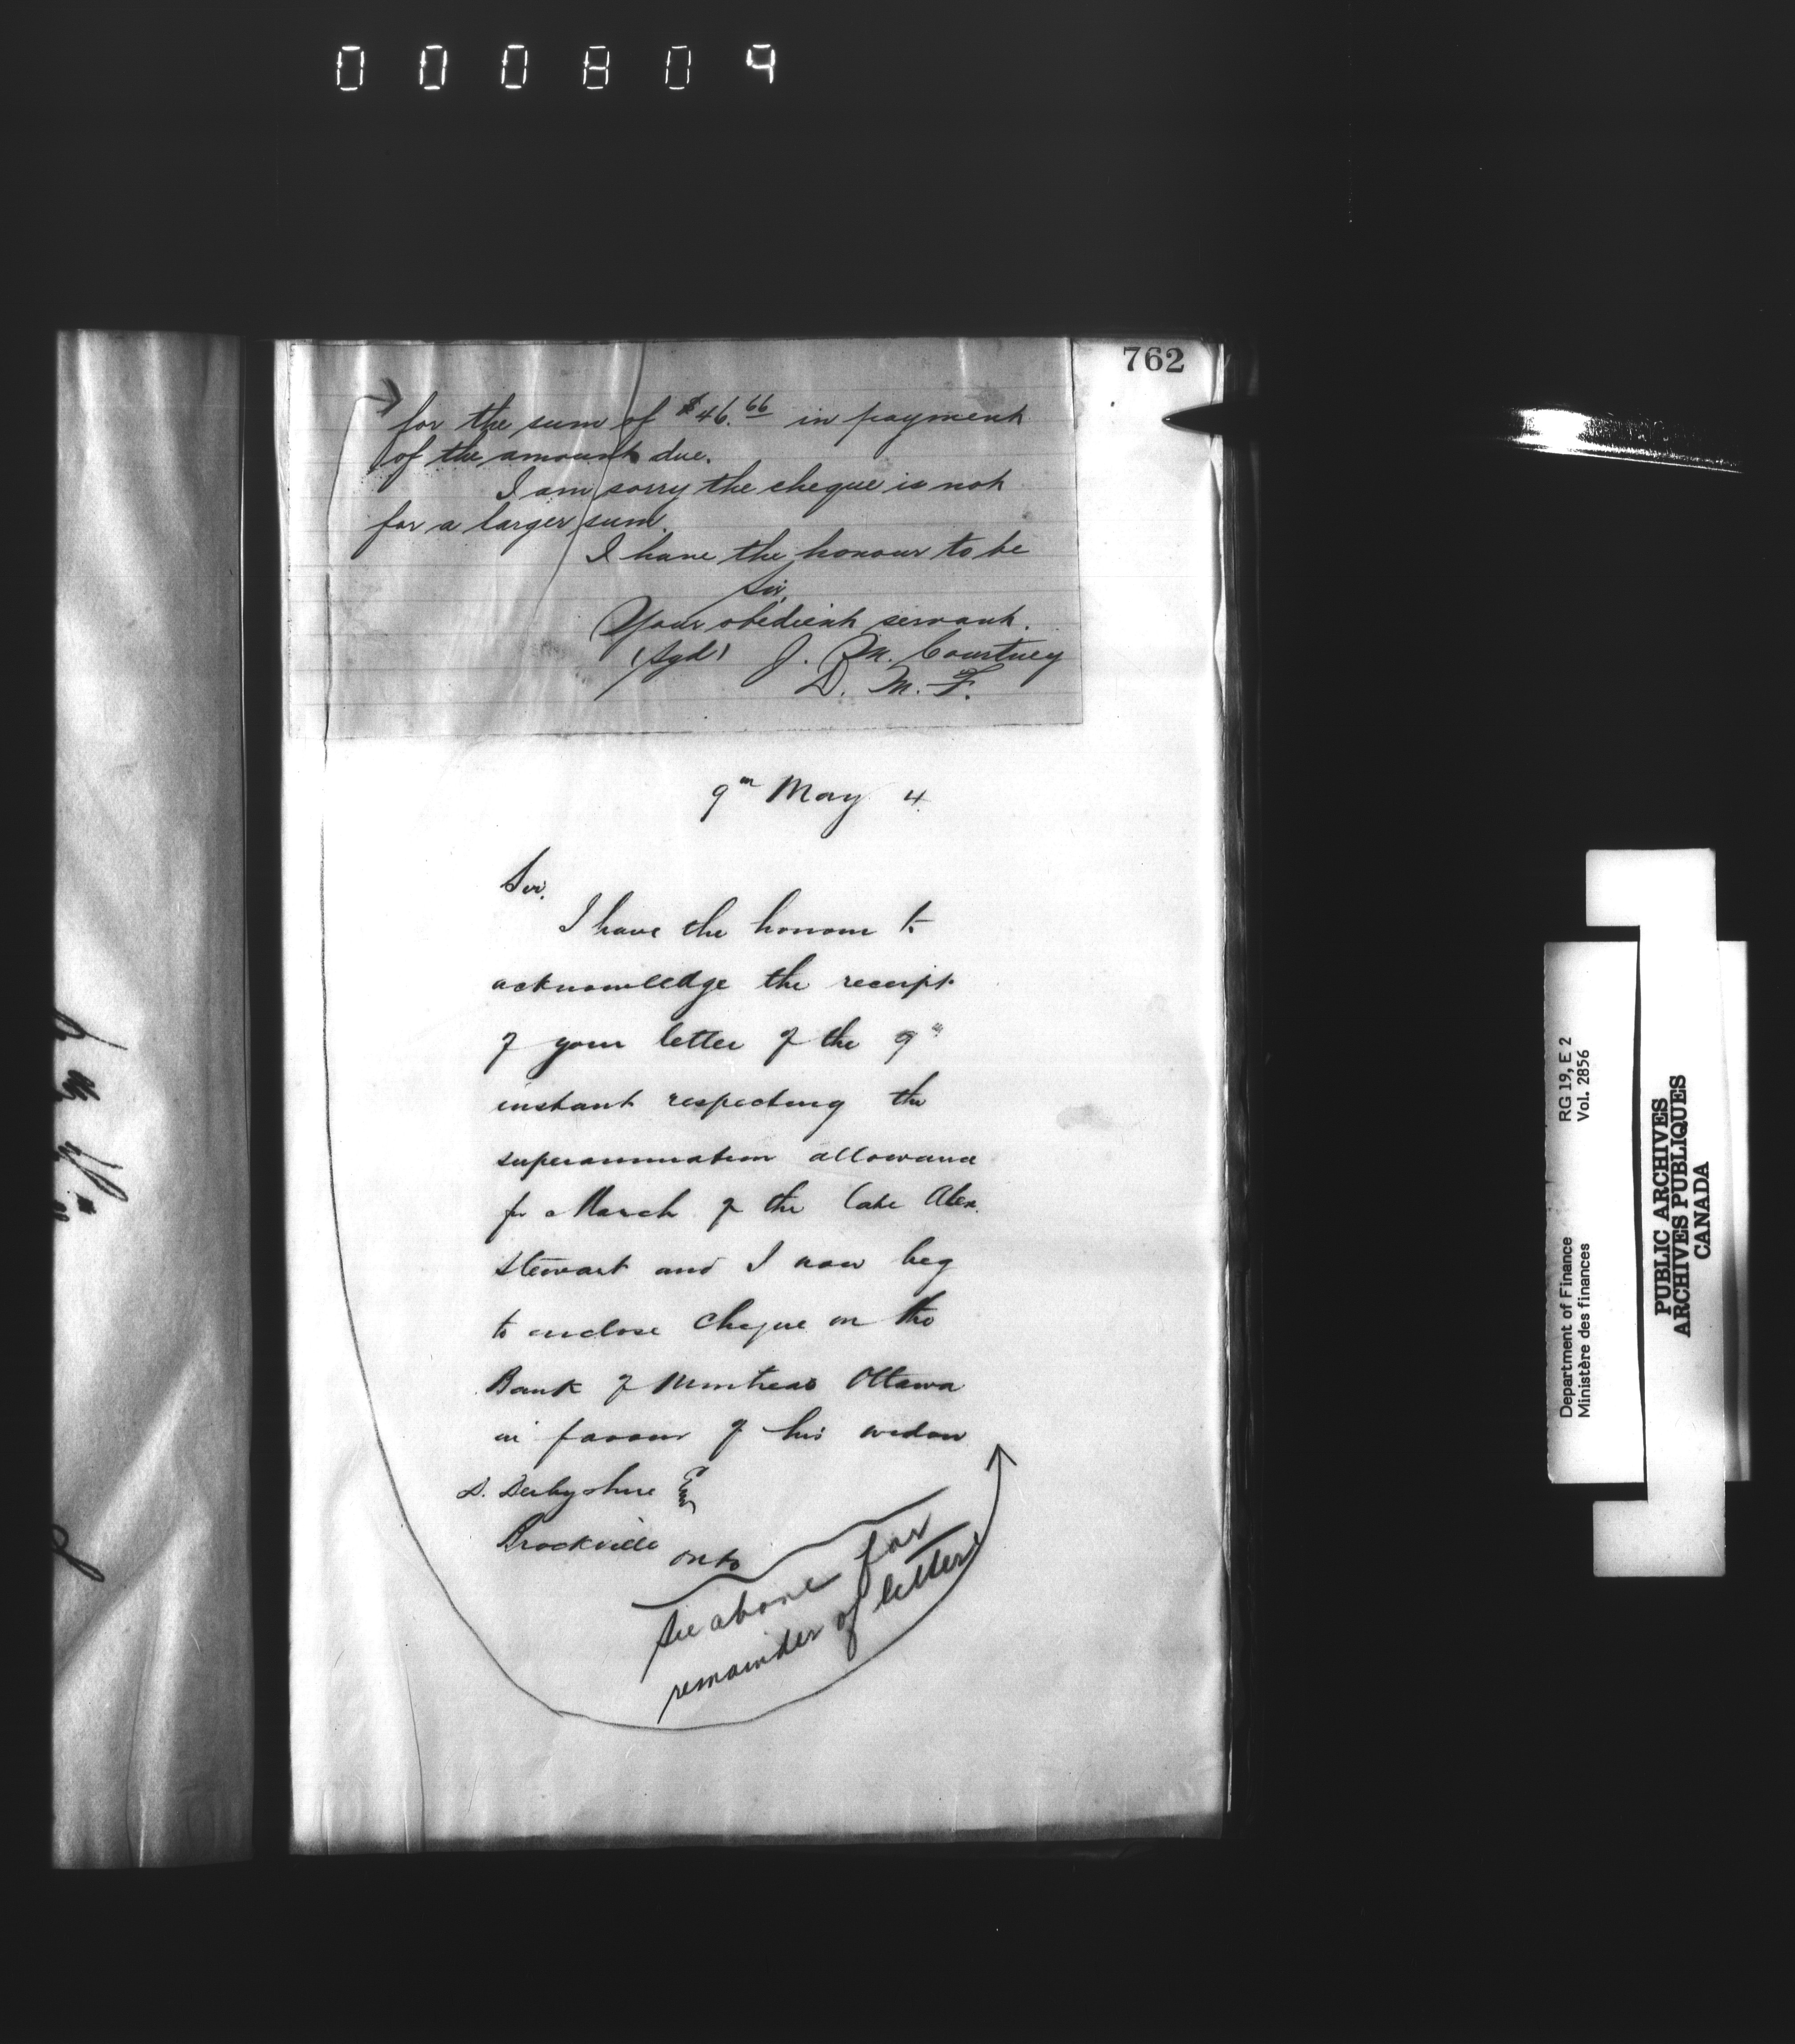 000809
762
for the sum of $46.66 in payment
of the amount due.
I am sorry the cheque is not
for a larger sum.
I have the honour to be
Sir,
Your obedient servant.
(Sgd) J. M. Courtney
D. M. F.
9th May 4.
Sir,
I have the honour to
acknowledge the receipt
of your letter of the 9th
instant respecting the
superannuation allowance
for March of the late Alex.
Stewart and I now beg
to enclose cheque on the
Bank of Montreal Ottawa
in favour of his widow
D. Derbyshire Esq
Brockville Onto
See above for
remainder of letter
RG 19, E 2
Vol. 2856
Department of Finance
Ministère des finances
PUBLIC ARCHIVES
ARCHIVES PUBLIQUES
CANADA